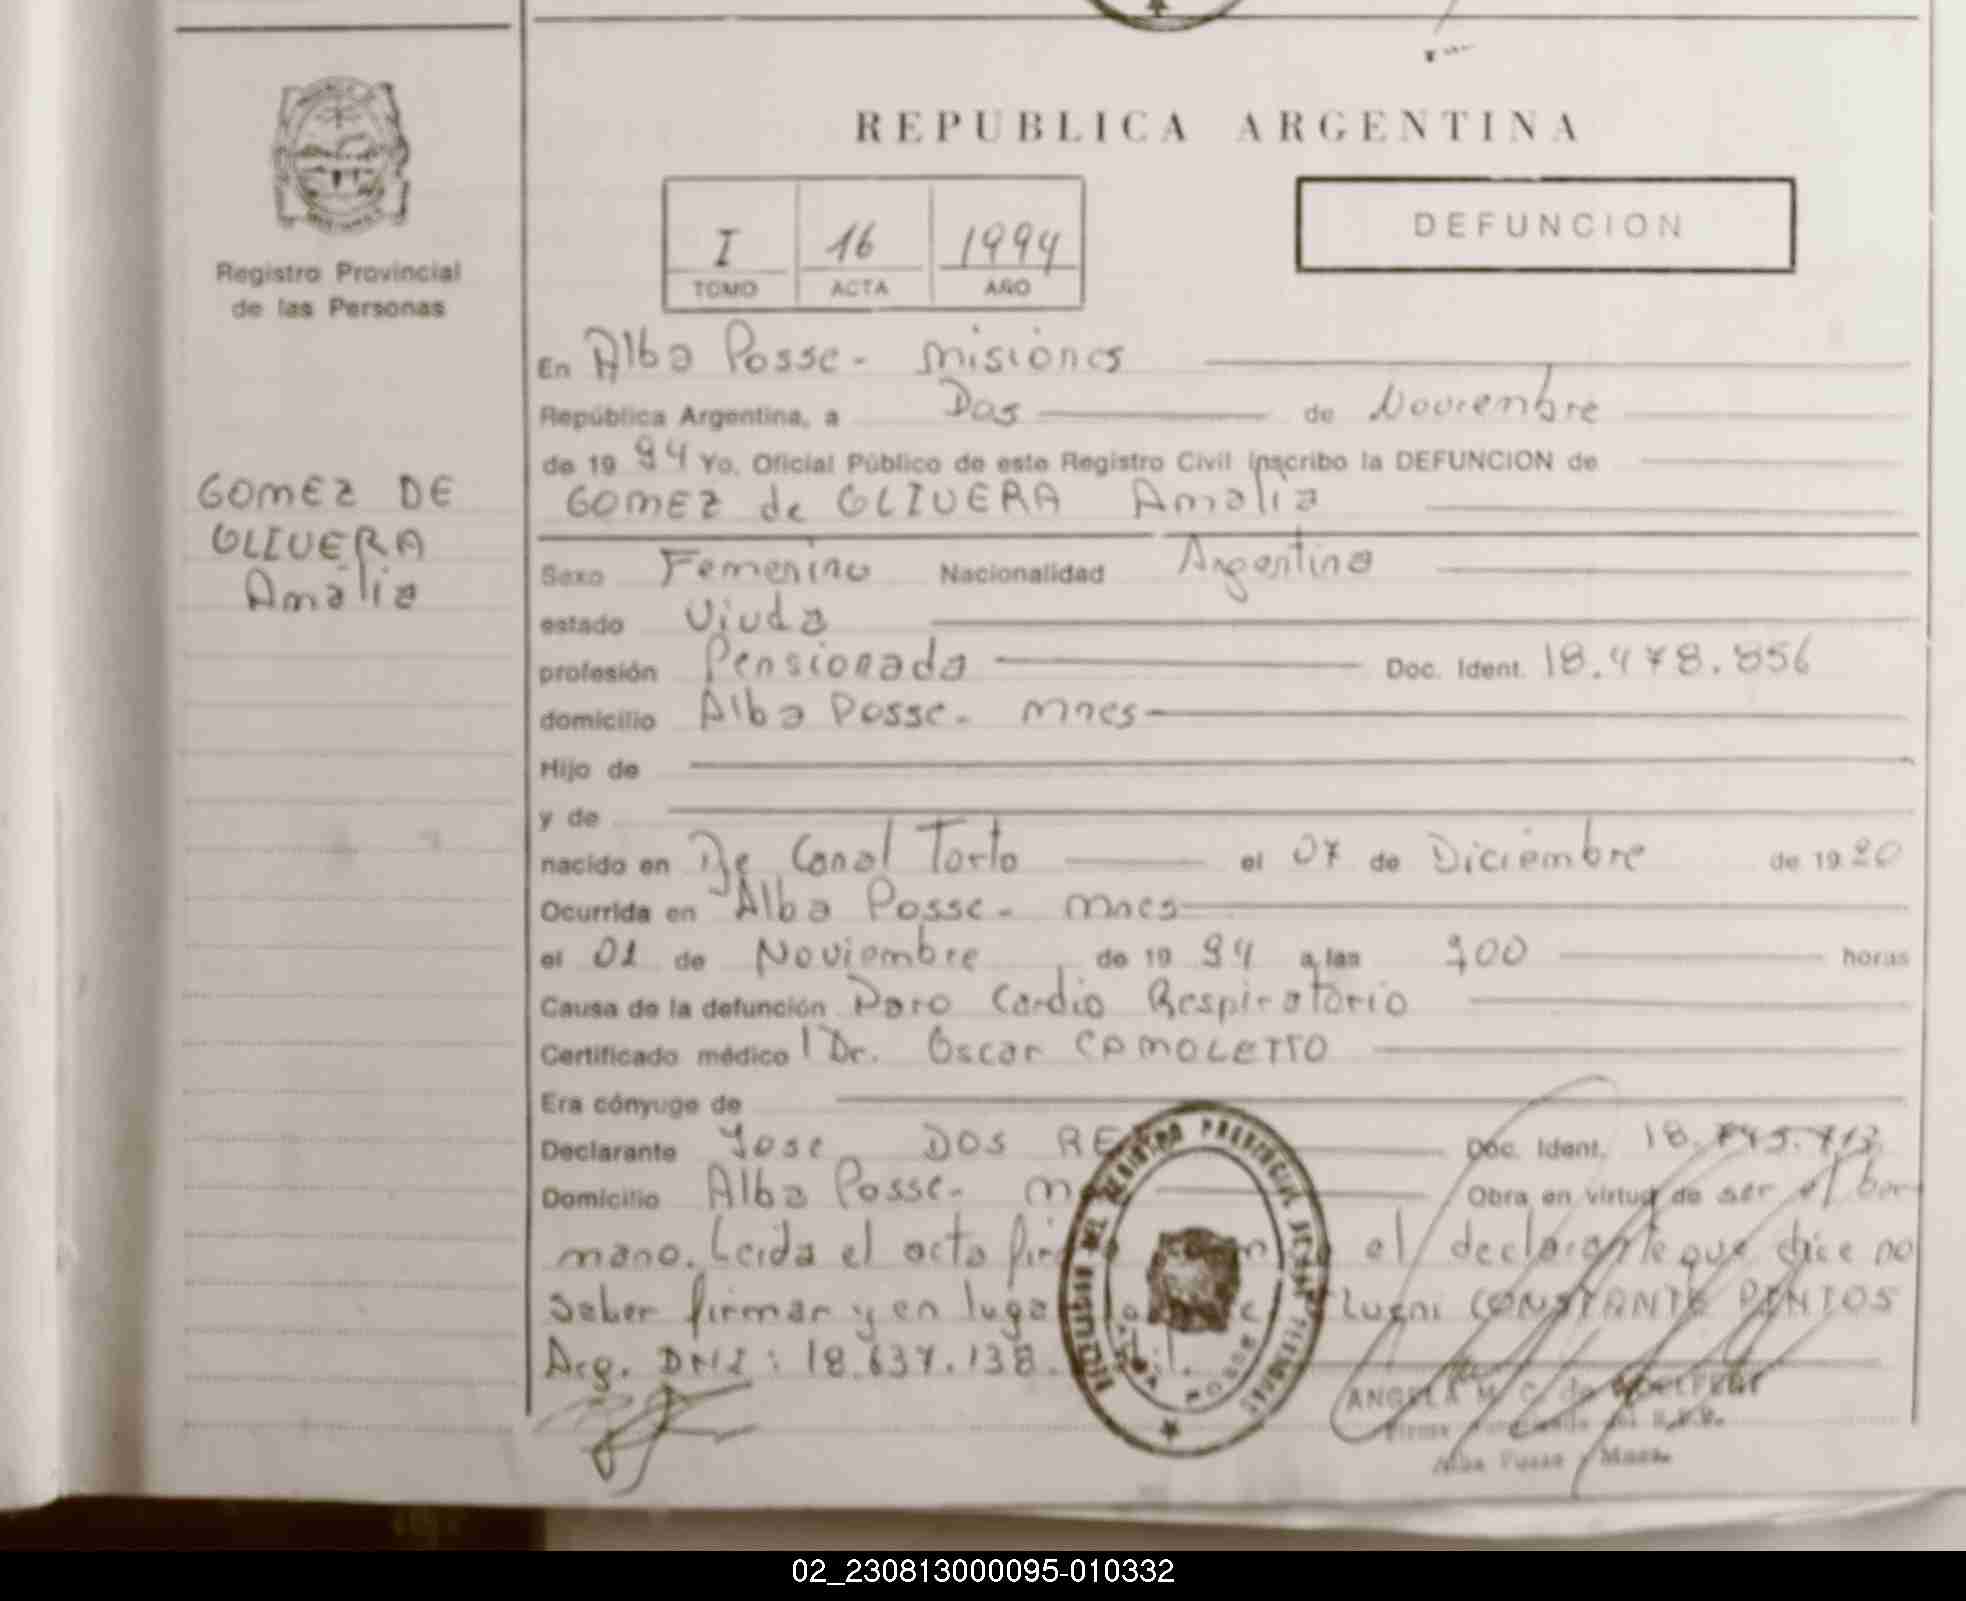 REPUBLICA ARGENTINA
Registro Provincial
de las Personas
I 16 1994
TOMO ACTA AÑO
DEFUNCION
GOMEZ DE
OLIVERA
Amalia
En Alba Posse - Misiones
República Argentina, a Dos de Noviembre
de 19 94 Yo, Oficial Público de este Registro Civil inscribo la DEFUNCION de
GOMEZ de OLIVERA Amalia
Sexo Femenino Nacionalidad Argentina
estado Viuda
profesión Pensionada Doc. Ident. 18.478.856
domicilio Alba Posse - Mnes
Hijo de
y de
nacido en De Canal Torto el 07 de Diciembre de 19 20
Ocurrida en Alba Posse - Mnes
el 01 de Noviembre de 19 94 a las 900 horas
Causa de la defunción Paro Cardio Respiratorio
Certificado médico Dr. Oscar CAMOLETTO
Era cónyuge de
Declarante Jose DOS Doc. Ident. 18.745.713
Domicilio Alba Posse - Obra en virtud de ser el her
mano. Leida el acta el declarante que dice no
saber firmar y en CONSTANTE PINTOS
Arg. DNI: 18.637.138.
REGISTRO PROVINCIAL DE LAS PERSONAS
ALBA POSSE
ANGELA M. C. de
Alba Posse - Mnes.
02_230813000095-010332